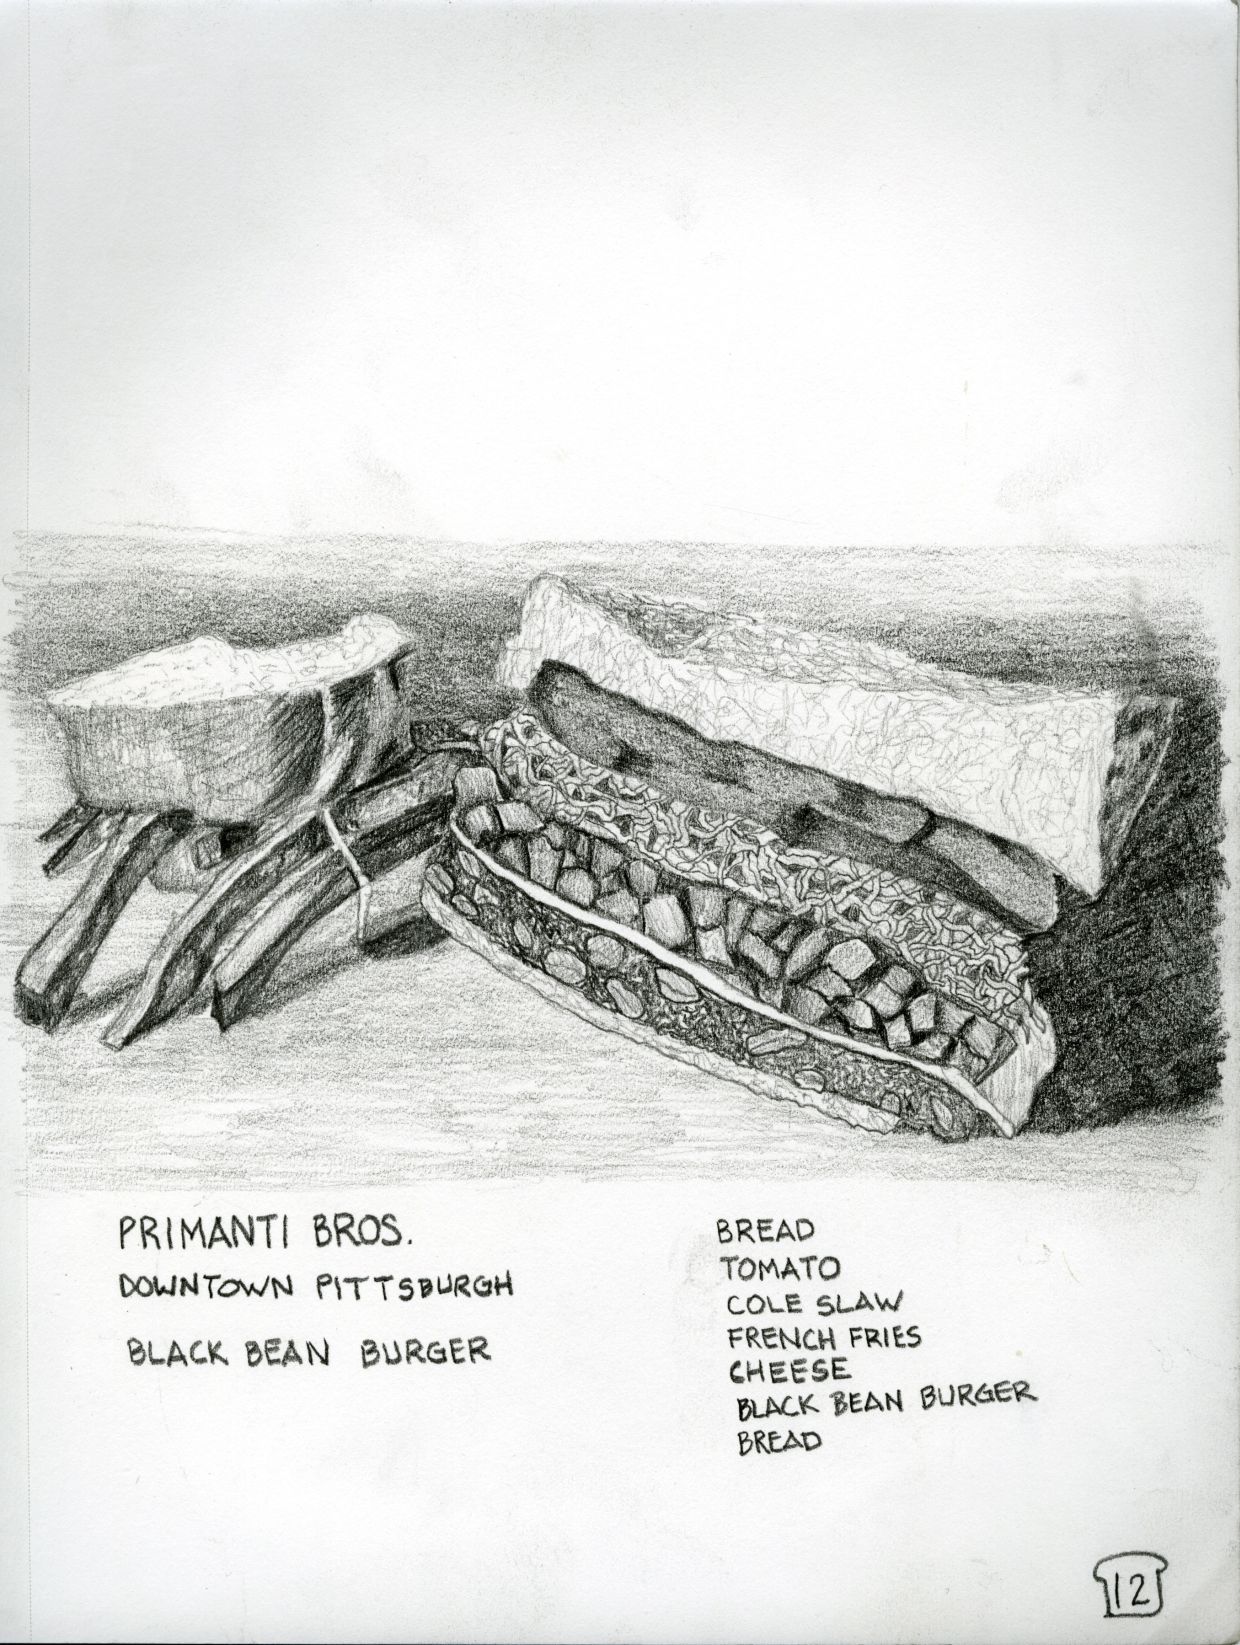 PRIMANTI BROS.
DOWNTOWN PITTSBURGH
BLACK BEAN BURGER
BREAD
TOMATO
COLE SLAW
FRENCH FRIES
CHEESE
BLACK BEAN BURGER
BREAD
12